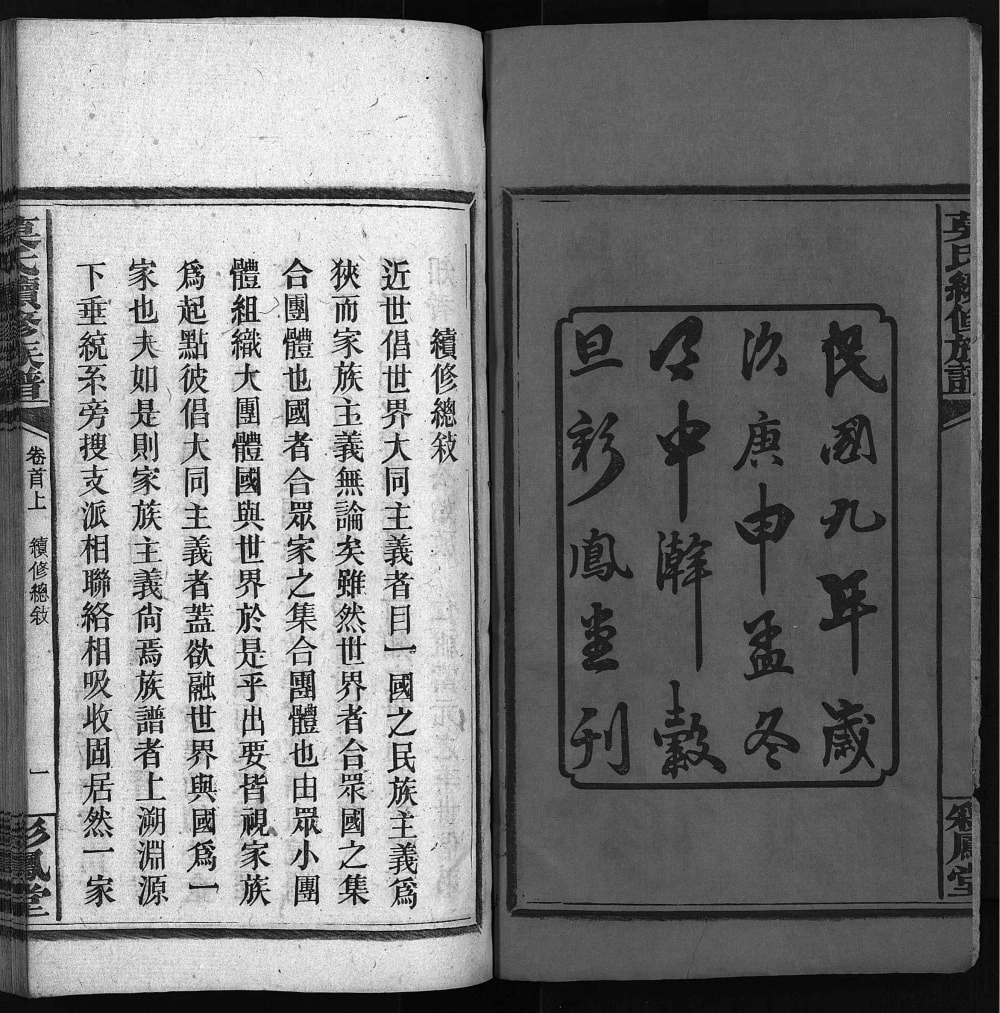 莫氏續修族譜
彩鳳堂
民國九年歲
次庚申孟冬
中澣穀
旦彩鳳堂刊
續修總敘
近世倡世界大同主義者目一國之民族主義爲
狹而家族主義無論矣雖然世界者合眾國之集
合團體也國者合眾家之集合團體也由眾小團
體組織大團體國與世界於是乎出要皆視家族
爲起點彼倡大同主義者蓋欲融世界與國爲一
家也夫如是則家族主義尙焉族譜者上溯淵源
下垂統系旁搜支派相聯絡相吸收固居然一家
莫氏續修族譜
卷首上
續修總敘
一
彩鳳堂